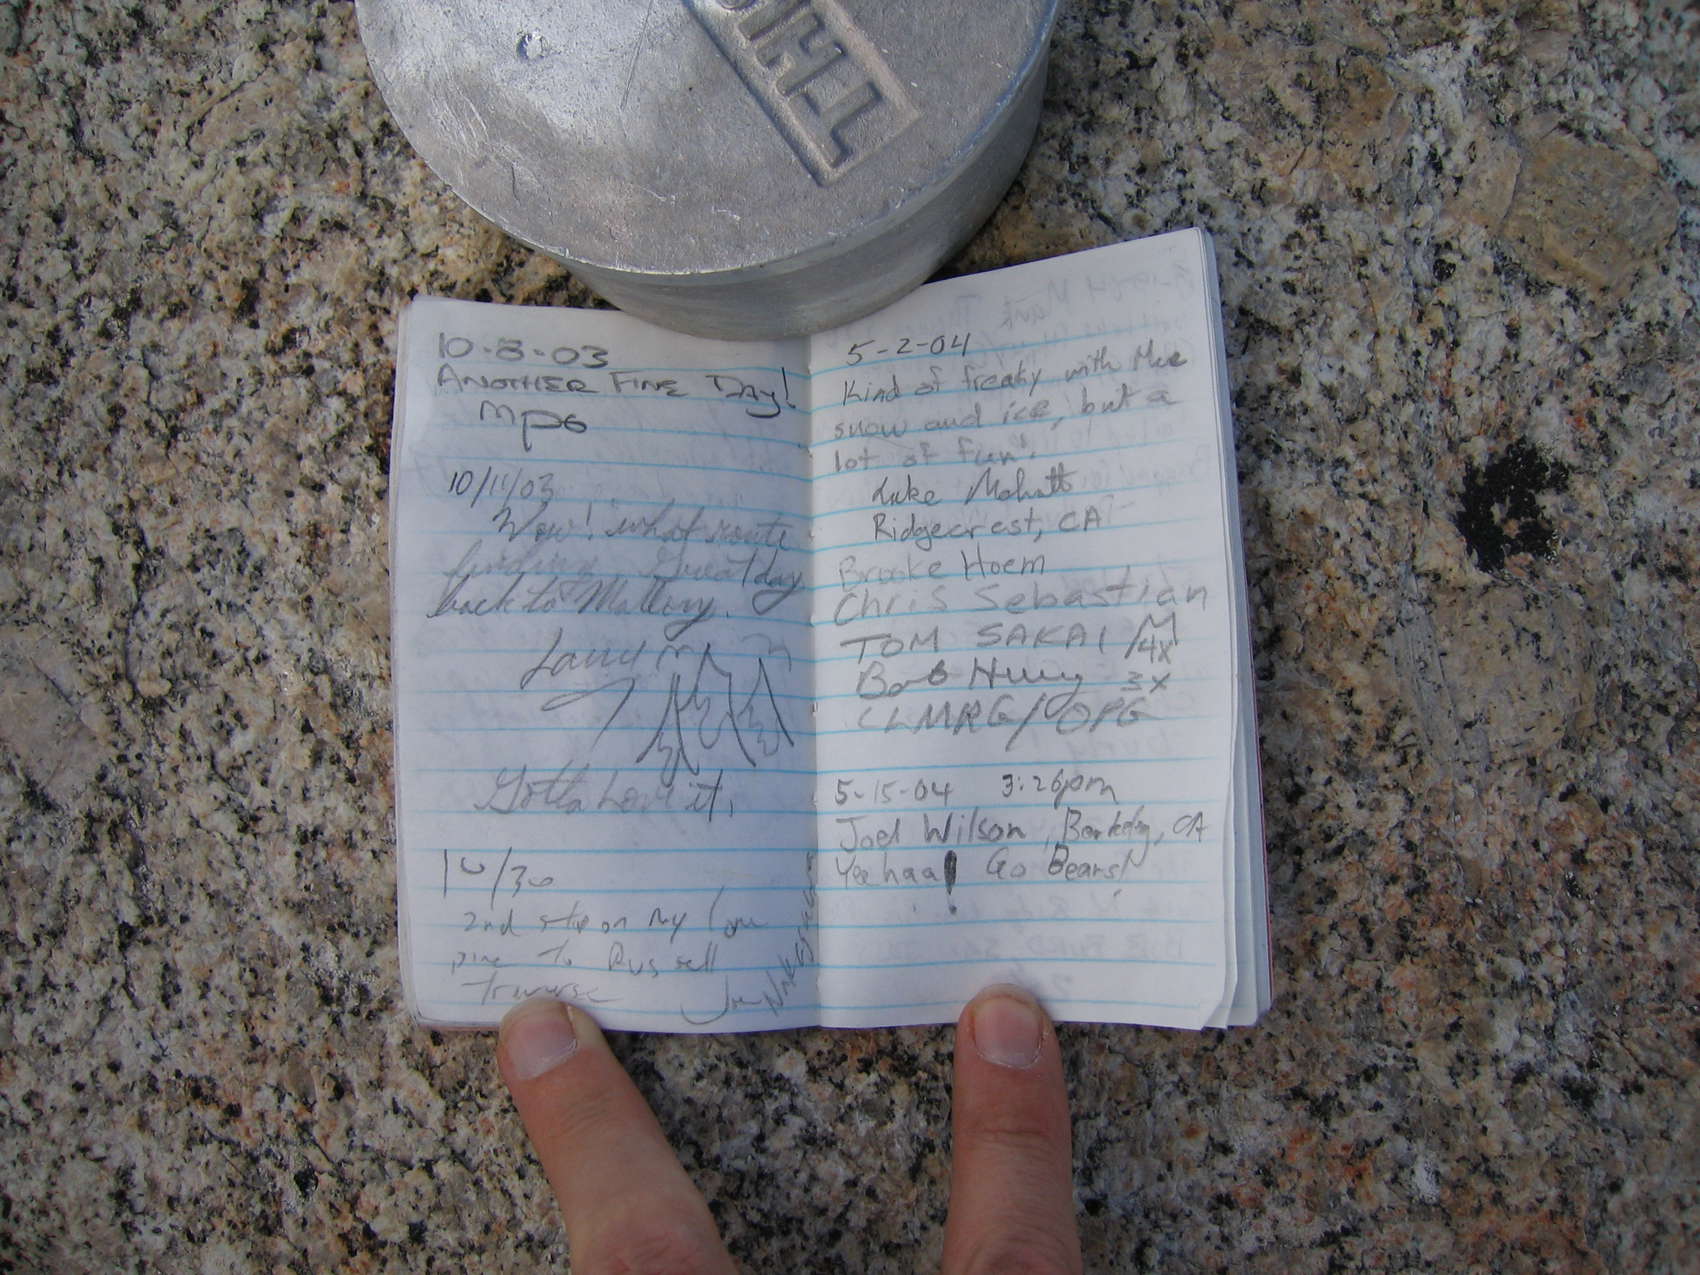 THIS
10-8-03
ANOTHER FINE DAY!
10/11/03
Wow! what route
finding Great day
back to Mallory.
Larry
Gotta Love it.
10/30
2nd stop on my Lone
pine to Russell
traverse Joe
5-2-04
Kind of freaky with the
snow and ice, but a
lot of fun!
Luke
Ridgecrest, CA
Brooke Hoem
Chris Sebastian
TOM SAKAI / 4X
Bob 3X
CLMRG/OPG
5-15-04 3:26pm
Joel Wilson, Berkeley, CA
Yeehaa! Go Bears!